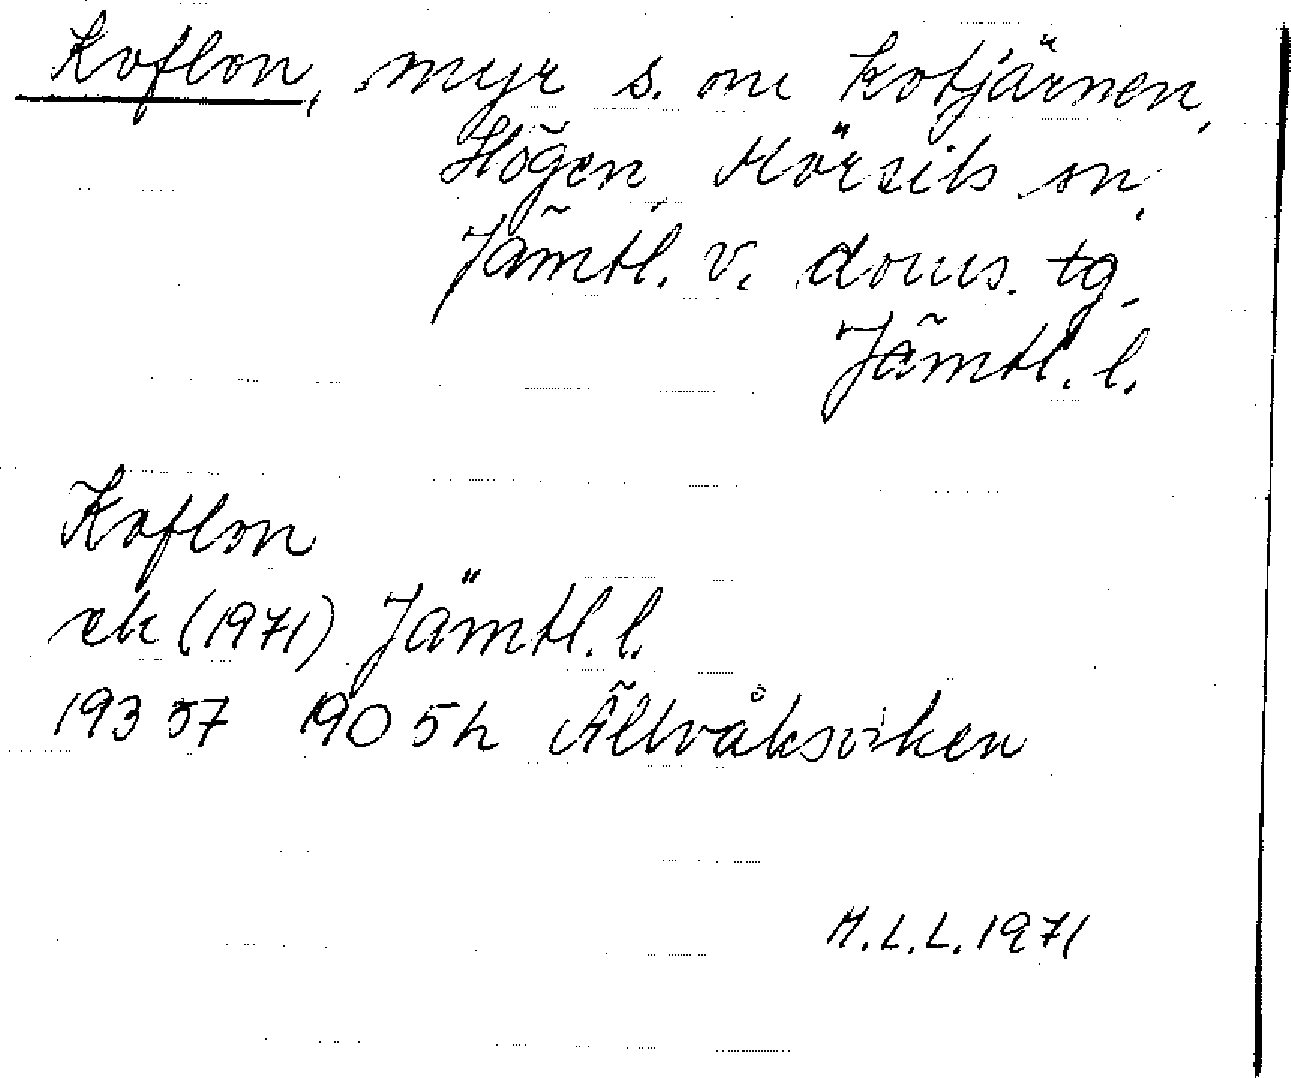 Koflon, myr s. om Kotjärnen,
Högen, Mörsils sn,
Jämtl. v. doms. tg.
Jämtl. l.
Koflon
ek (1971) Jämtl. l.
193 57 190 5h Ällvåksviken
M.L.L. 1971